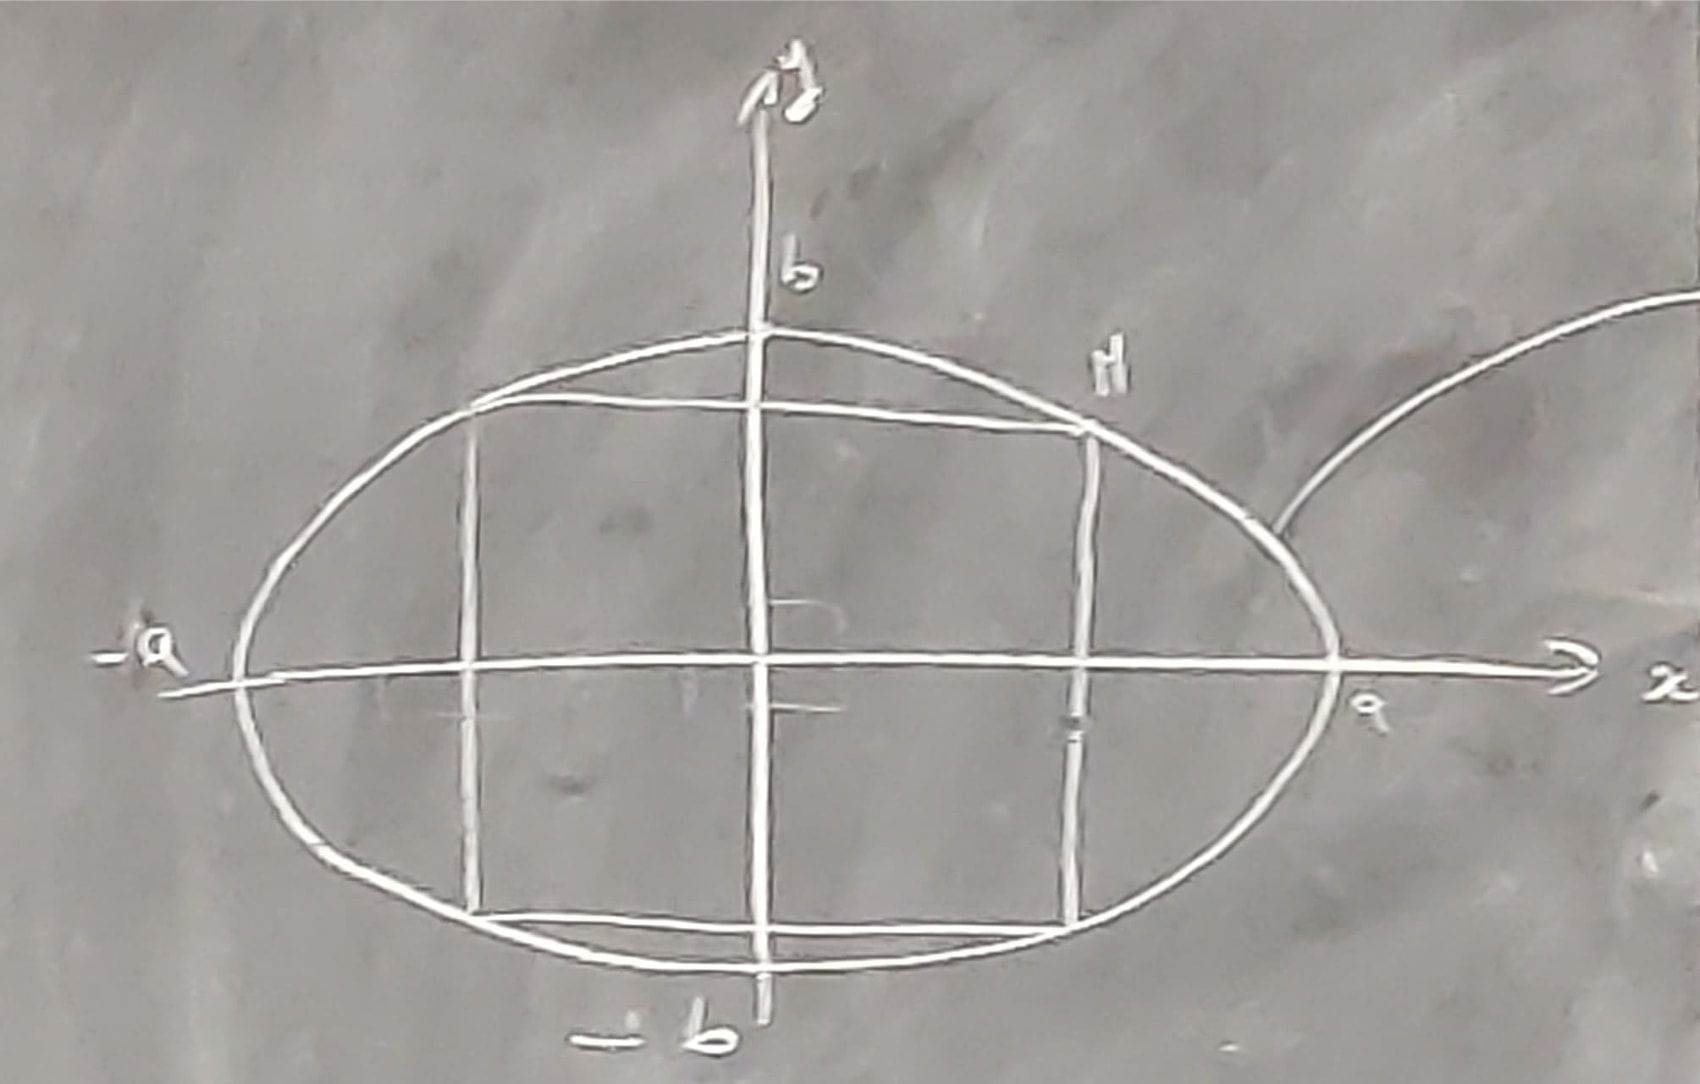 y
b
M
-a
a
x
-b